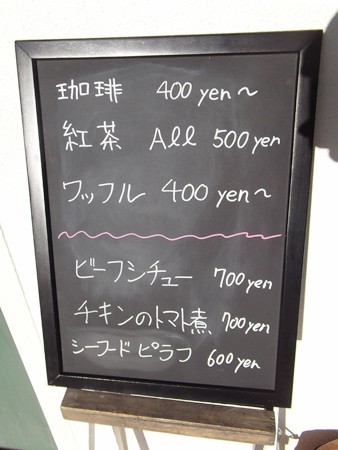 珈琲 400 yen～
紅茶 All 500 yen
ワッフル 400 yen～
ビーフシチュー 700 yen
チキンのトマト煮 700 yen
シーフードピラフ 600 yen